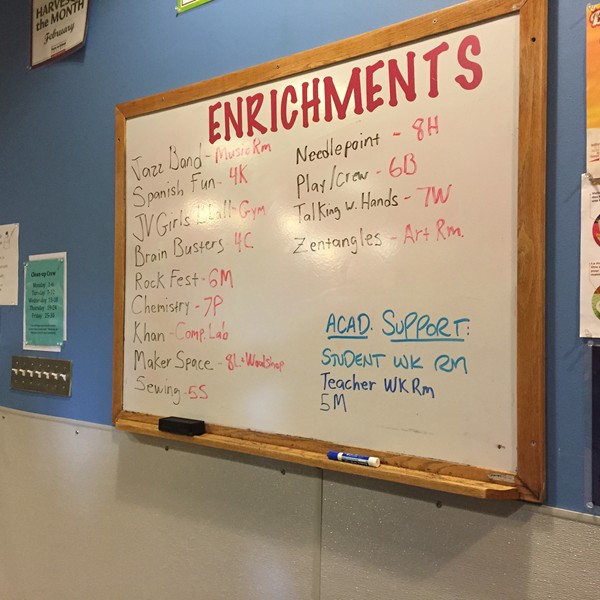 HARVEST
of the MONTH
February
ENRICHMENTS
Jazz Band - Music Rm
Spanish Fun - 4K
JV Girls - Gym
Brain Busters 4C
Rock Fest - 6M
Chemistry - 7P
Khan - Comp. Lab
Maker Space - 8L + Woodshop
Sewing - 5S
Needlepoint - 8H
Play/Crew - 6B
Talking w. Hands - 7W
Zentangles - Art Rm.
ACAD. SUPPORT:
STUDENT WK RM
Teacher WK Rm
5M
Clean-up Crew